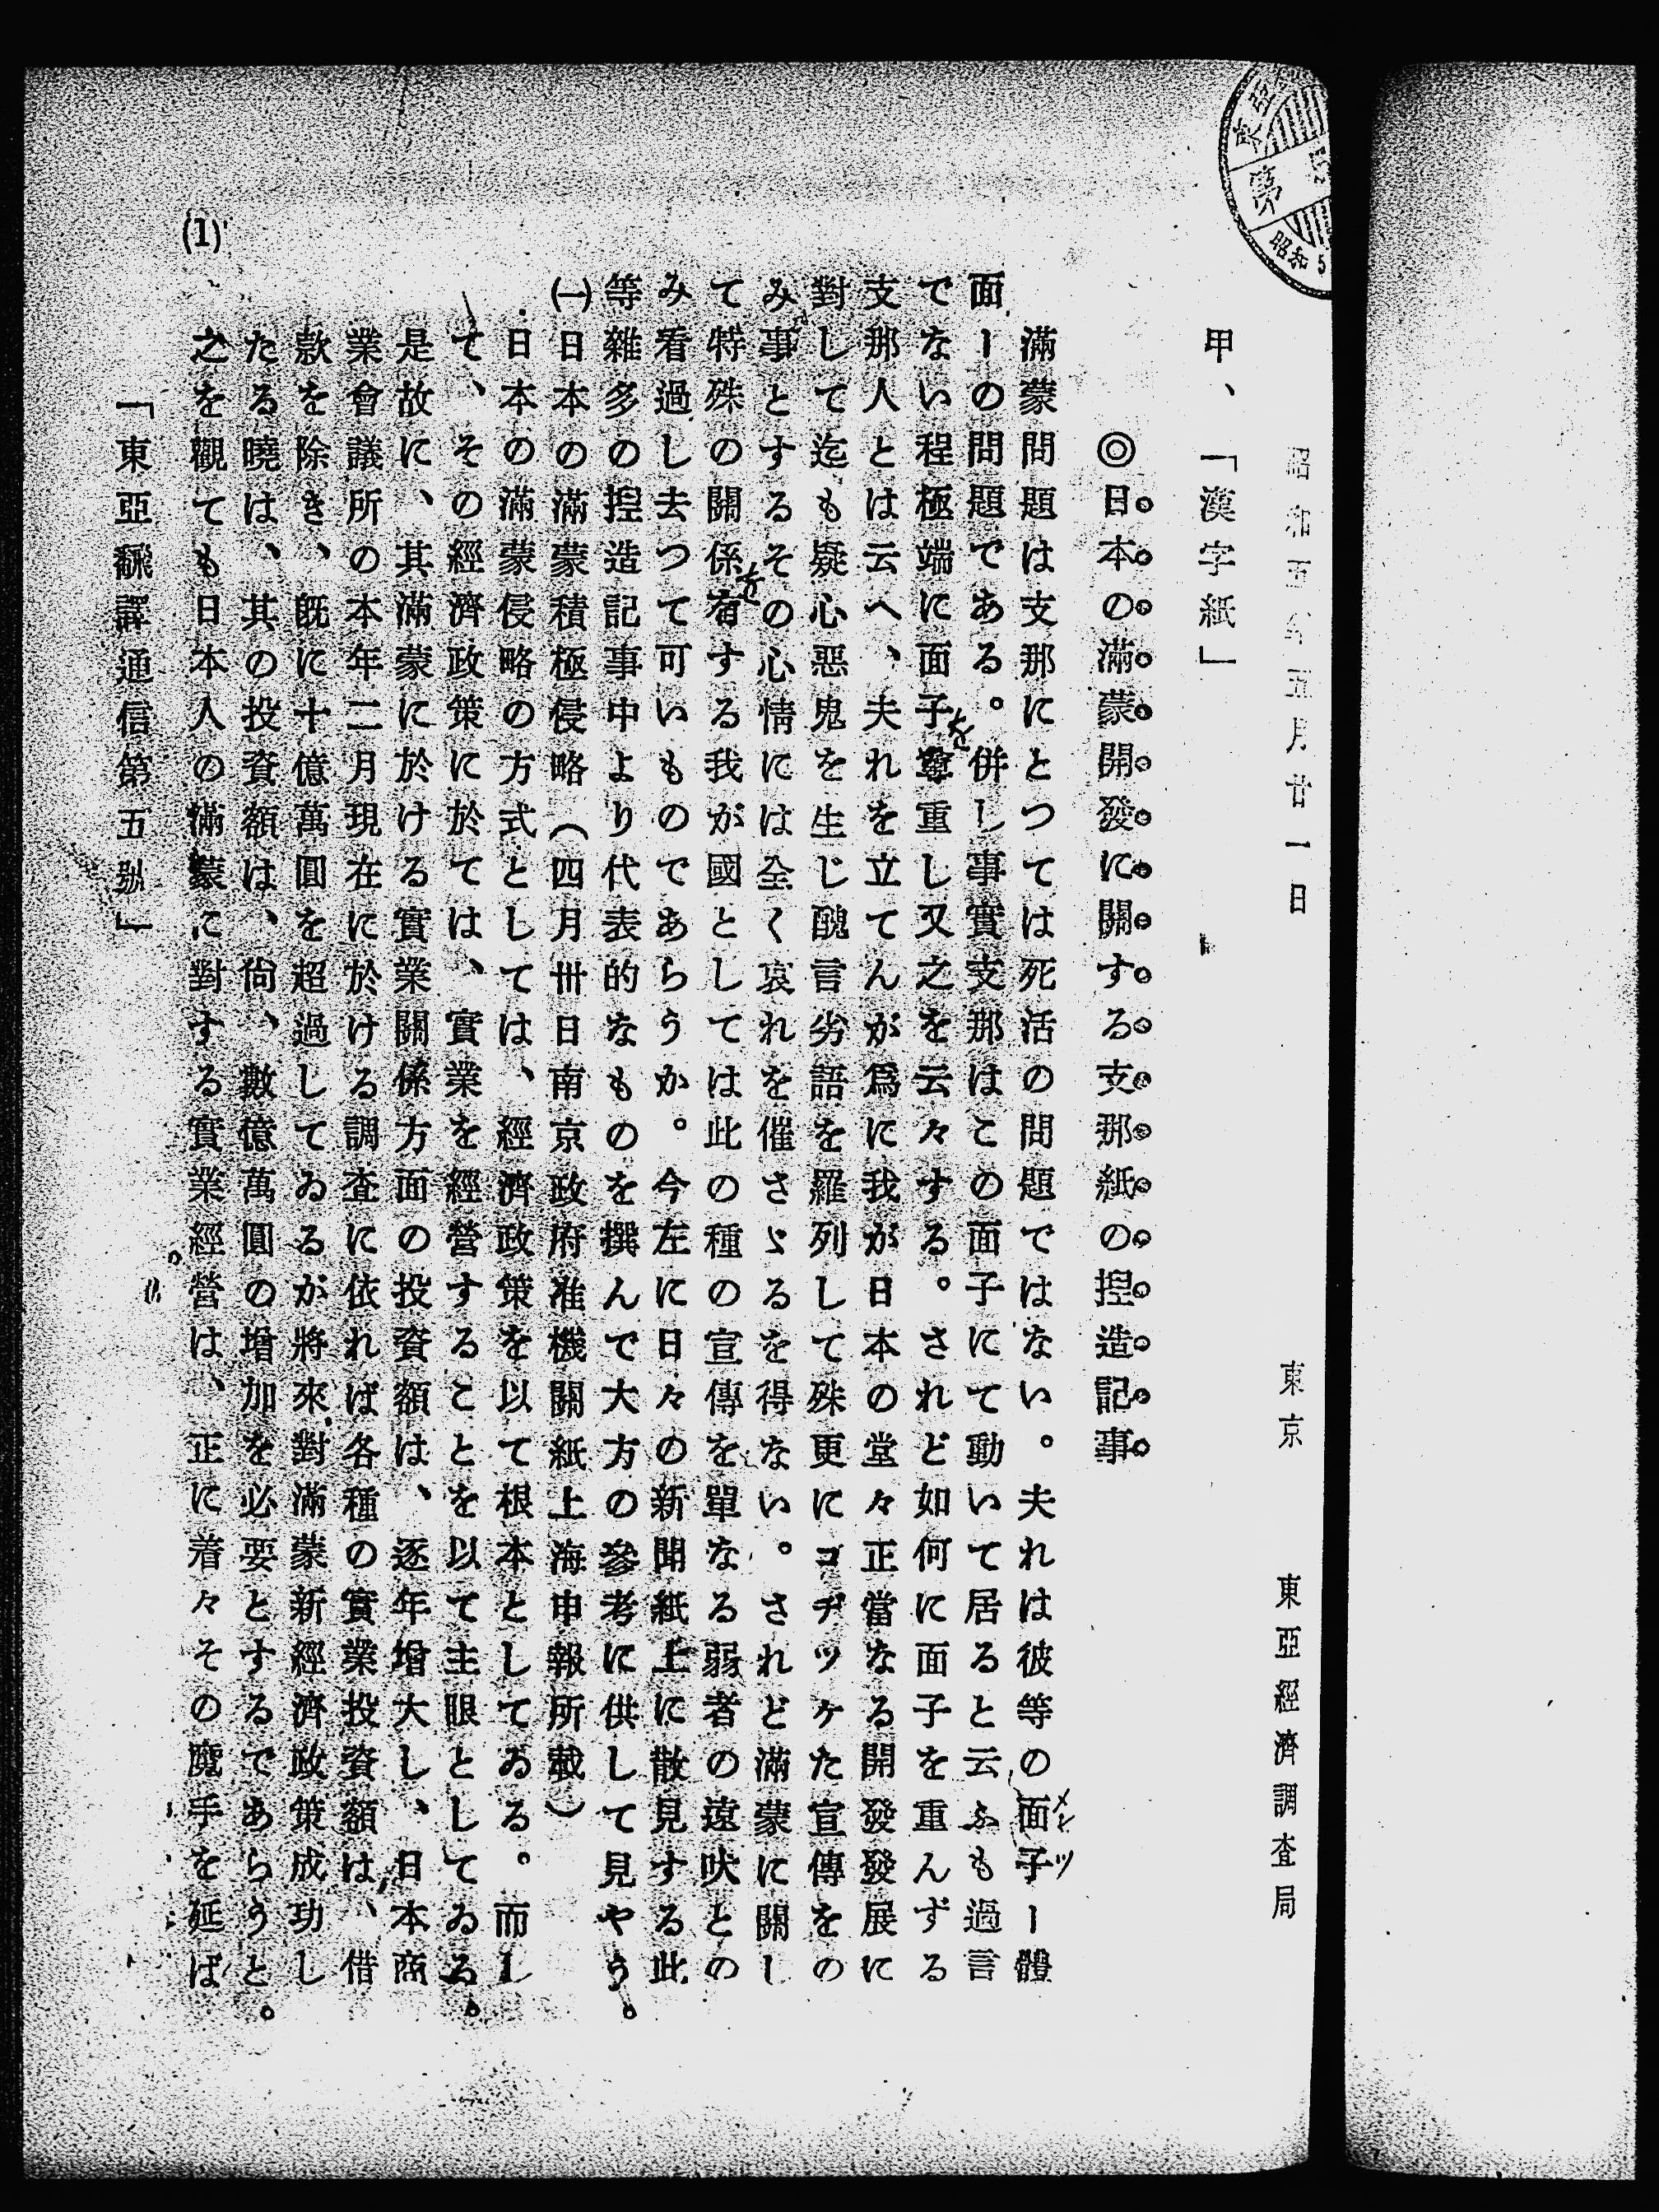 昭和五年五月廿一日　東京　東亞經濟調査局
甲、「漢字紙」
◎日本の滿蒙開發に關する支那紙の捏造記事
滿蒙問題は支那にとつては死活の問題ではない。夫れは彼等の面子ー體
面ーの問題である。併し事實支那はこの面子にて動いて居ると云ふも過言
でない程極端に面子を尊重し又之を云々する。されど如何に面子を重んずる
支那人とは云へ、夫れを立てんが爲に我が日本の堂々正當なる開發發展に
對して迄も疑心惡鬼を生じ醜言劣語を羅列して殊更にコヂツケた宣傳をの
み事とするその心情には全く哀れを催さゞるを得ない。されど滿蒙に關し
て特殊の關係を有する我が國としては此の種の宣傳を單なる弱者の遠吠との
み看過し去つて可いものであらうか。今左に日々の新聞紙上に散見する此
等雜多の捏造記事中より代表的なものを撰んで大方の參考に供して見やう。
㈠日本の滿蒙積極侵略（四月卅日南京政府准機關紙上海申報所載）
日本の滿蒙侵略の方式としては、經濟政策を以て根本としてゐる。而し
て、その經濟政策に於ては、實業を經營することを以て主眼としてゐる。
是故に、其滿蒙に於ける實業關係方面の投資額は、逐年增大し、日本商
業會議所の本年二月現在に於ける調査に依れば各種の實業投資額は、借
款を除き、旣に十億萬圓を超過してゐるが將來對滿蒙新經濟政策成功し
たる曉は、其の投資額は、尙、數億萬圓の增加を必要とするであらうと。
之を觀ても日本人の滿蒙に對する實業經營は、正に着々その魔手を延ば
「東亞飜譯通信第五號」
(1)
東亞
第
昭和5
メンツ